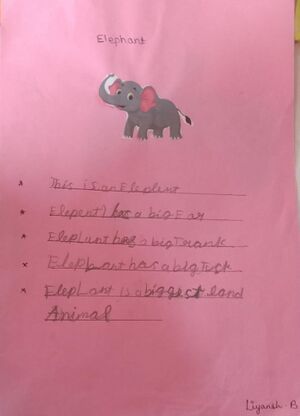 Elephant
* This is an Eleplent
* Elepent) has a big Ear
* Eleplant has a big Trank
* Elephant has a big Tusk
* Elephant is a biggest land
Animal
Liyansh. B